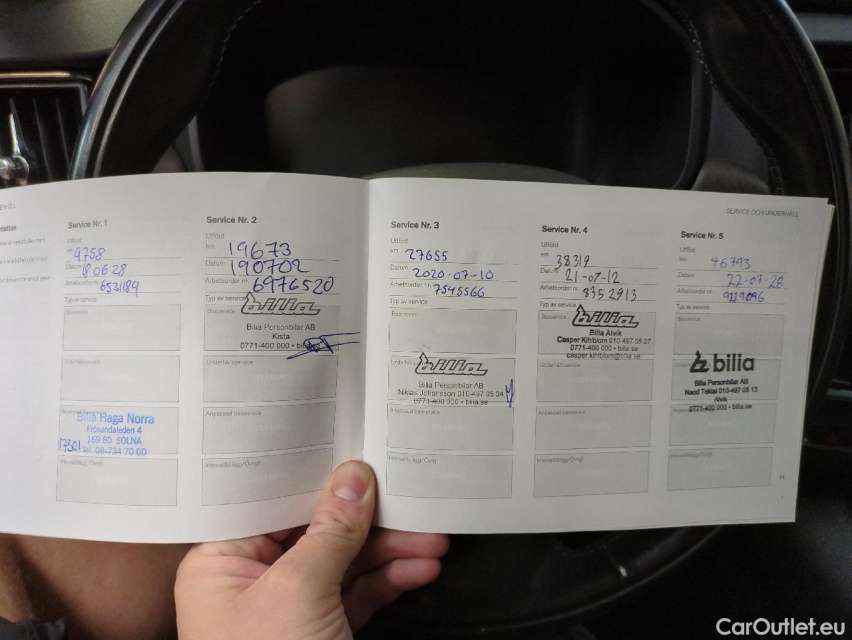 SERVICE OCH UNDERHÅLL
Service Nr. 1
Utförd
km 9758
Datum 180628
Arbetsorder nr. 6531189
Typ av service
Basservice
Underhållsservice
Anpassad basservice
Bilia Haga Norra
Frösundaleden 4
169 80 SOLNA
Tel. 08-734 70 00
17301
Intervalltillägg/Övrigt
Service Nr. 2
Utförd
km 19673
Datum 190702
Arbetsorder nr. 6976520
Typ av service
bilia
Basservice
Bilia Personbilar AB
Kista
0771-400 000 •
Underhållsservice
Anpassad basservice
Intervalltillägg/Övrigt
Service Nr. 3
Utförd
km 27655
Datum 2020-07-10
Arbetsorder nr. 7545566
Typ av service
Basservice
Underhållsservice
bilia
Bilia Personbilar AB
Niklas Johansson 010-497 05 34
0771-400 000 • bilia.se
Anpassad basservice
Intervalltillägg/Övrigt
Service Nr. 4
Utförd
km 38319
Datum 21-07-12
Arbetsorder nr. 8352913
Typ av service
Basservice
bilia
Bilia Alvik
Casper Kihlblom 010-497 05 27
0771-400 000 • bilia.se
casper.kihlblom@bilia.se
Underhållsservice
Anpassad basservice
Intervalltillägg/Övrigt
Service Nr. 5
Utförd
km 46793
Datum 22-07-26
Arbetsorder nr. 9119096
Typ av service
Basservice
bilia
Bilia Personbilar AB
Naod Teklai 010-497 05 13
Alvik
0771-400 000 • bilia.se
Anpassad basservice
Intervalltillägg/Övrigt
CarOutlet.eu